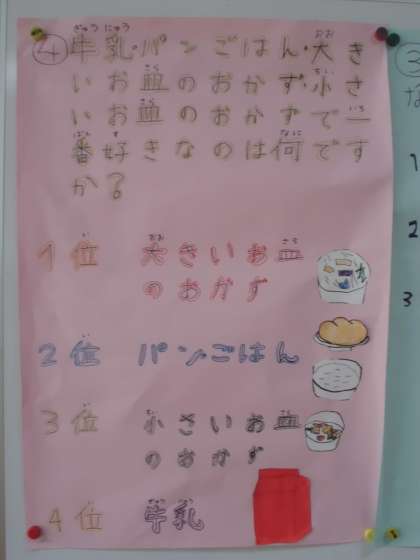 ④牛乳・パンごはん・大き
いお皿のおかず・小さ
いお皿のおかずで一
番好きなのは何です
か?
1位 大きいお皿
のおかず
2位 パンごはん
3位 小さいお皿
のおかず
4位 牛乳
③
1
2
3